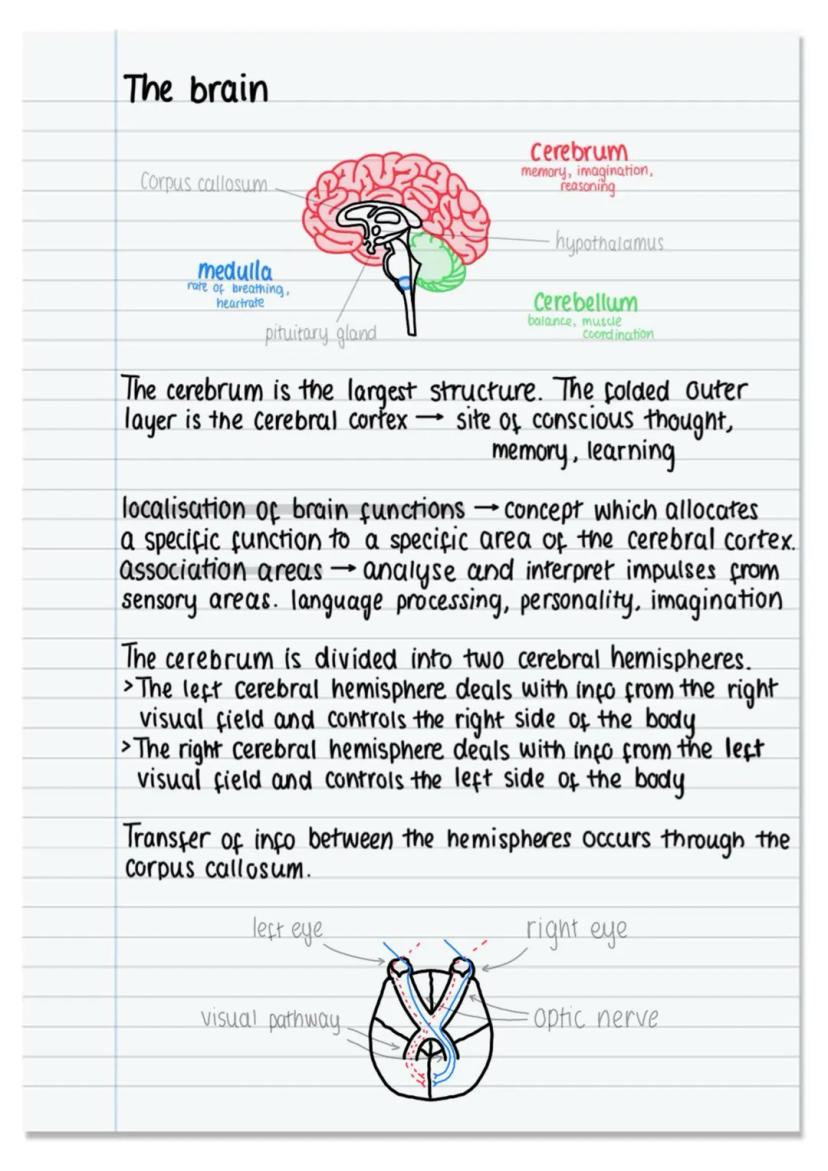 The brain
Cerebrum
memory, imagination,
reasoning
Corpus callosum
hypothalamus
medulla
rate of breathing,
heartrate
Cerebellum
balance, muscle
coordination
pituitary gland
The cerebrum is the largest structure. The folded outer
layer is the cerebral cortex → site of conscious thought,
memory, learning
localisation of brain functions → concept which allocates
a specific function to a specific area of the cerebral cortex.
association areas → analyse and interpret impulses from
sensory areas. language processing, personality, imagination
The cerebrum is divided into two cerebral hemispheres.
>The left cerebral hemisphere deals with info from the right
visual field and controls the right side of the body
>The right cerebral hemisphere deals with info from the left
visual field and controls the left side of the body
Transfer of info between the hemispheres occurs through the
corpus callosum.
left eye
right eye
visual pathway
optic nerve